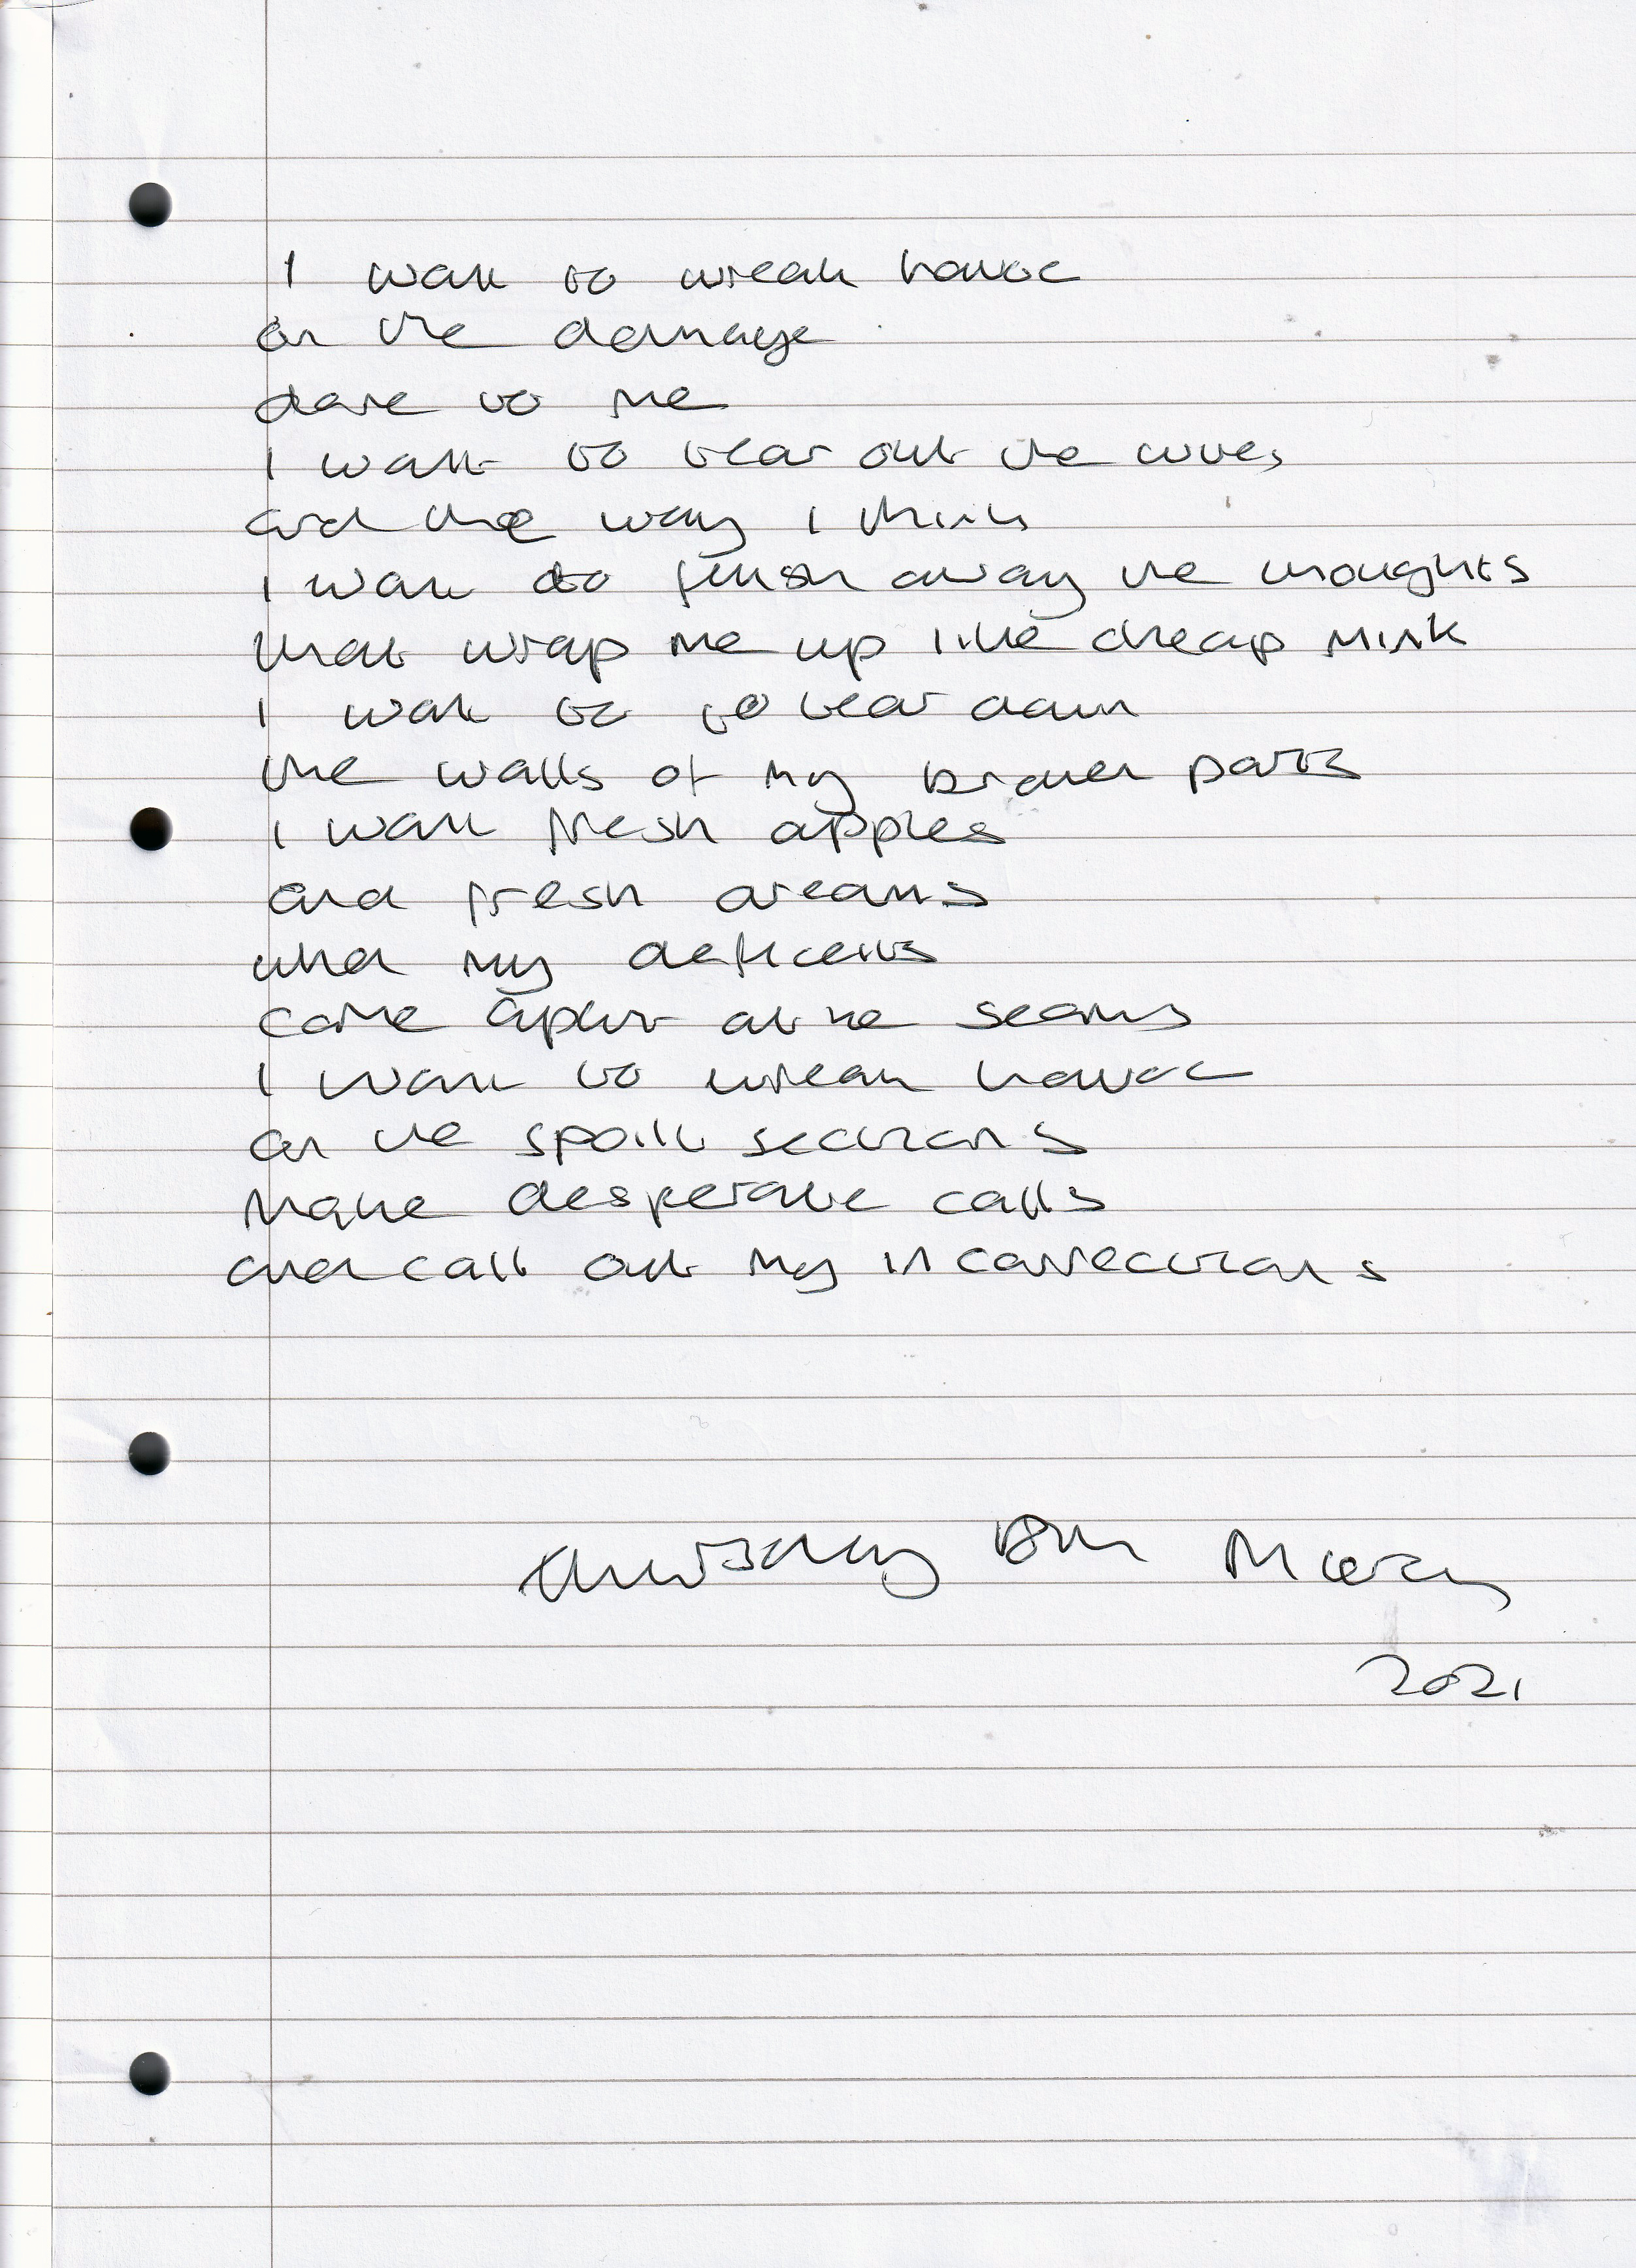 I want to wreak havoc
on the damage
done to me
I want to tear out the wires
and the way I think
I want to flush away the thoughts
that wrap me up like cheap mink
I want to to tear down
the walls of my broken parts
I want fresh apples
and fresh dreams
when my deficits
come apart at the seams
I want to wreak havoc
on the spoilt sections
Make desperate calls
and call out my incorrections
2021